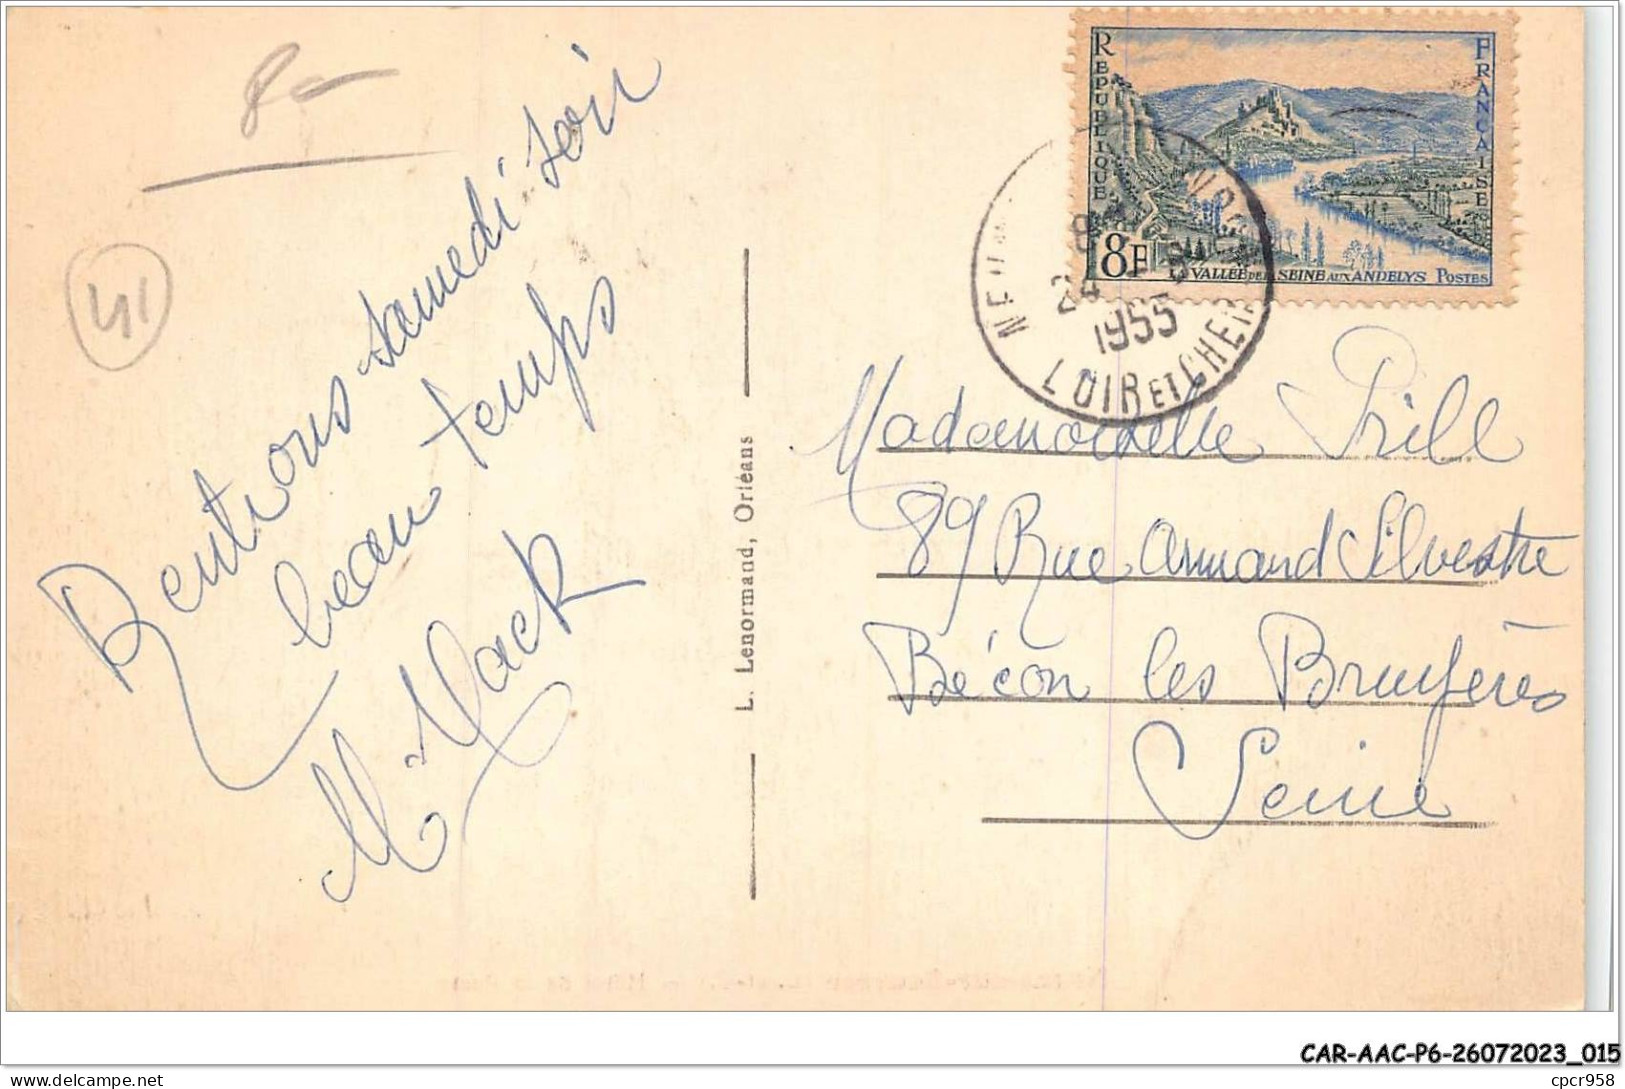 8-
41
Rentrons samedi soir
beau temps
M. Mack
L. Lenormand, Orléans
REPUBLIQUE FRANCAISE
8F
LA VALLEE DE LA SEINE AUX ANDELYS POSTES
24
1955
LOIR ET CHER
Mademoiselle Prill
89 Rue Armand Silvestre
Bécon les Bruyères
Seine
CAR-AAC-P6-26072023_015
delcampe.net
cpcr958